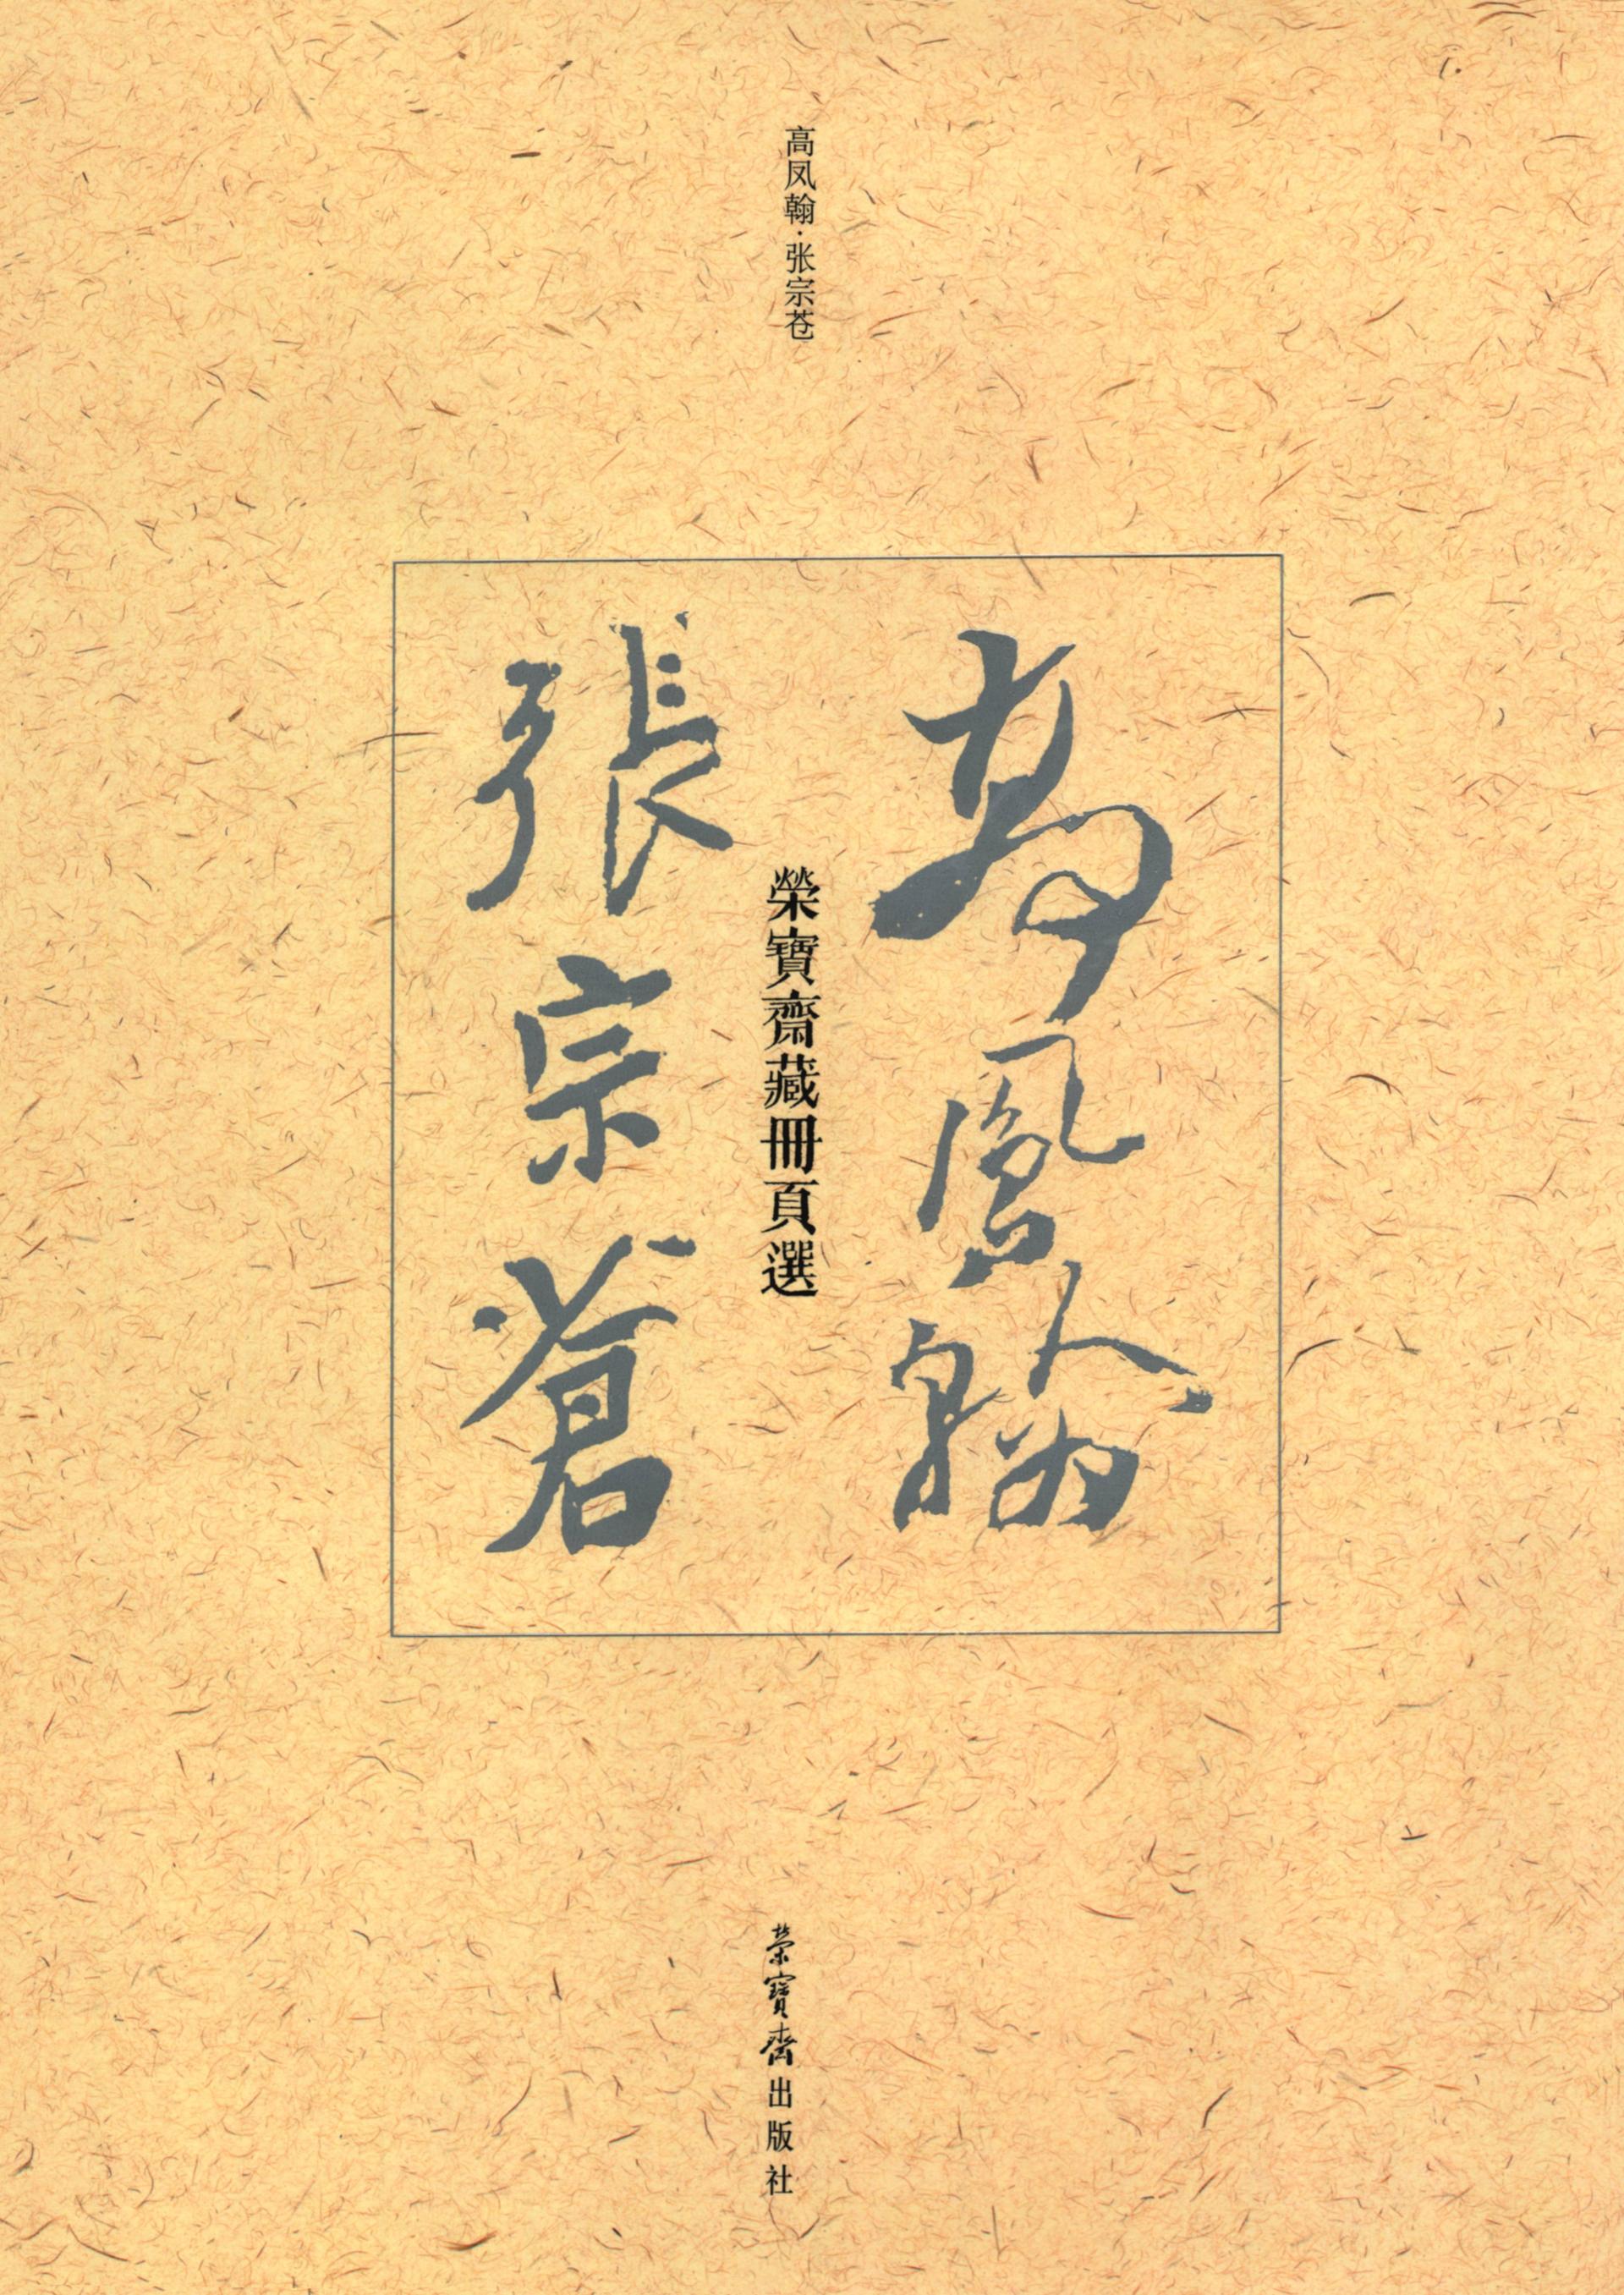 高凤翰·张宗苍
高鳳翰
榮寶齋藏冊頁選
張宗蒼
榮寶齋出版社